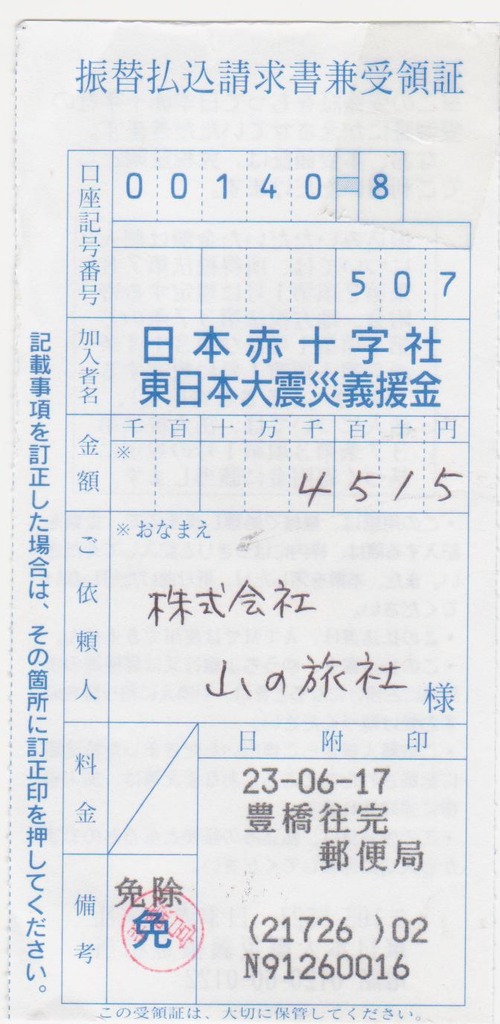 振替払込請求書兼受領証
口座記号番号
00140-8
507
加入者名
日本赤十字社
東日本大震災義援金
金額
千百十万千百十円
※
4515
ご依頼人
※おなまえ
株式会社
山の旅社
様
料金
日附印
23-06-17
豊橋往完
郵便局
(21726 )02
N91260016
備考
免除
免
記載事項を訂正した場合は、その箇所に訂正印を押してください。
この受領証は、大切に保管してください。